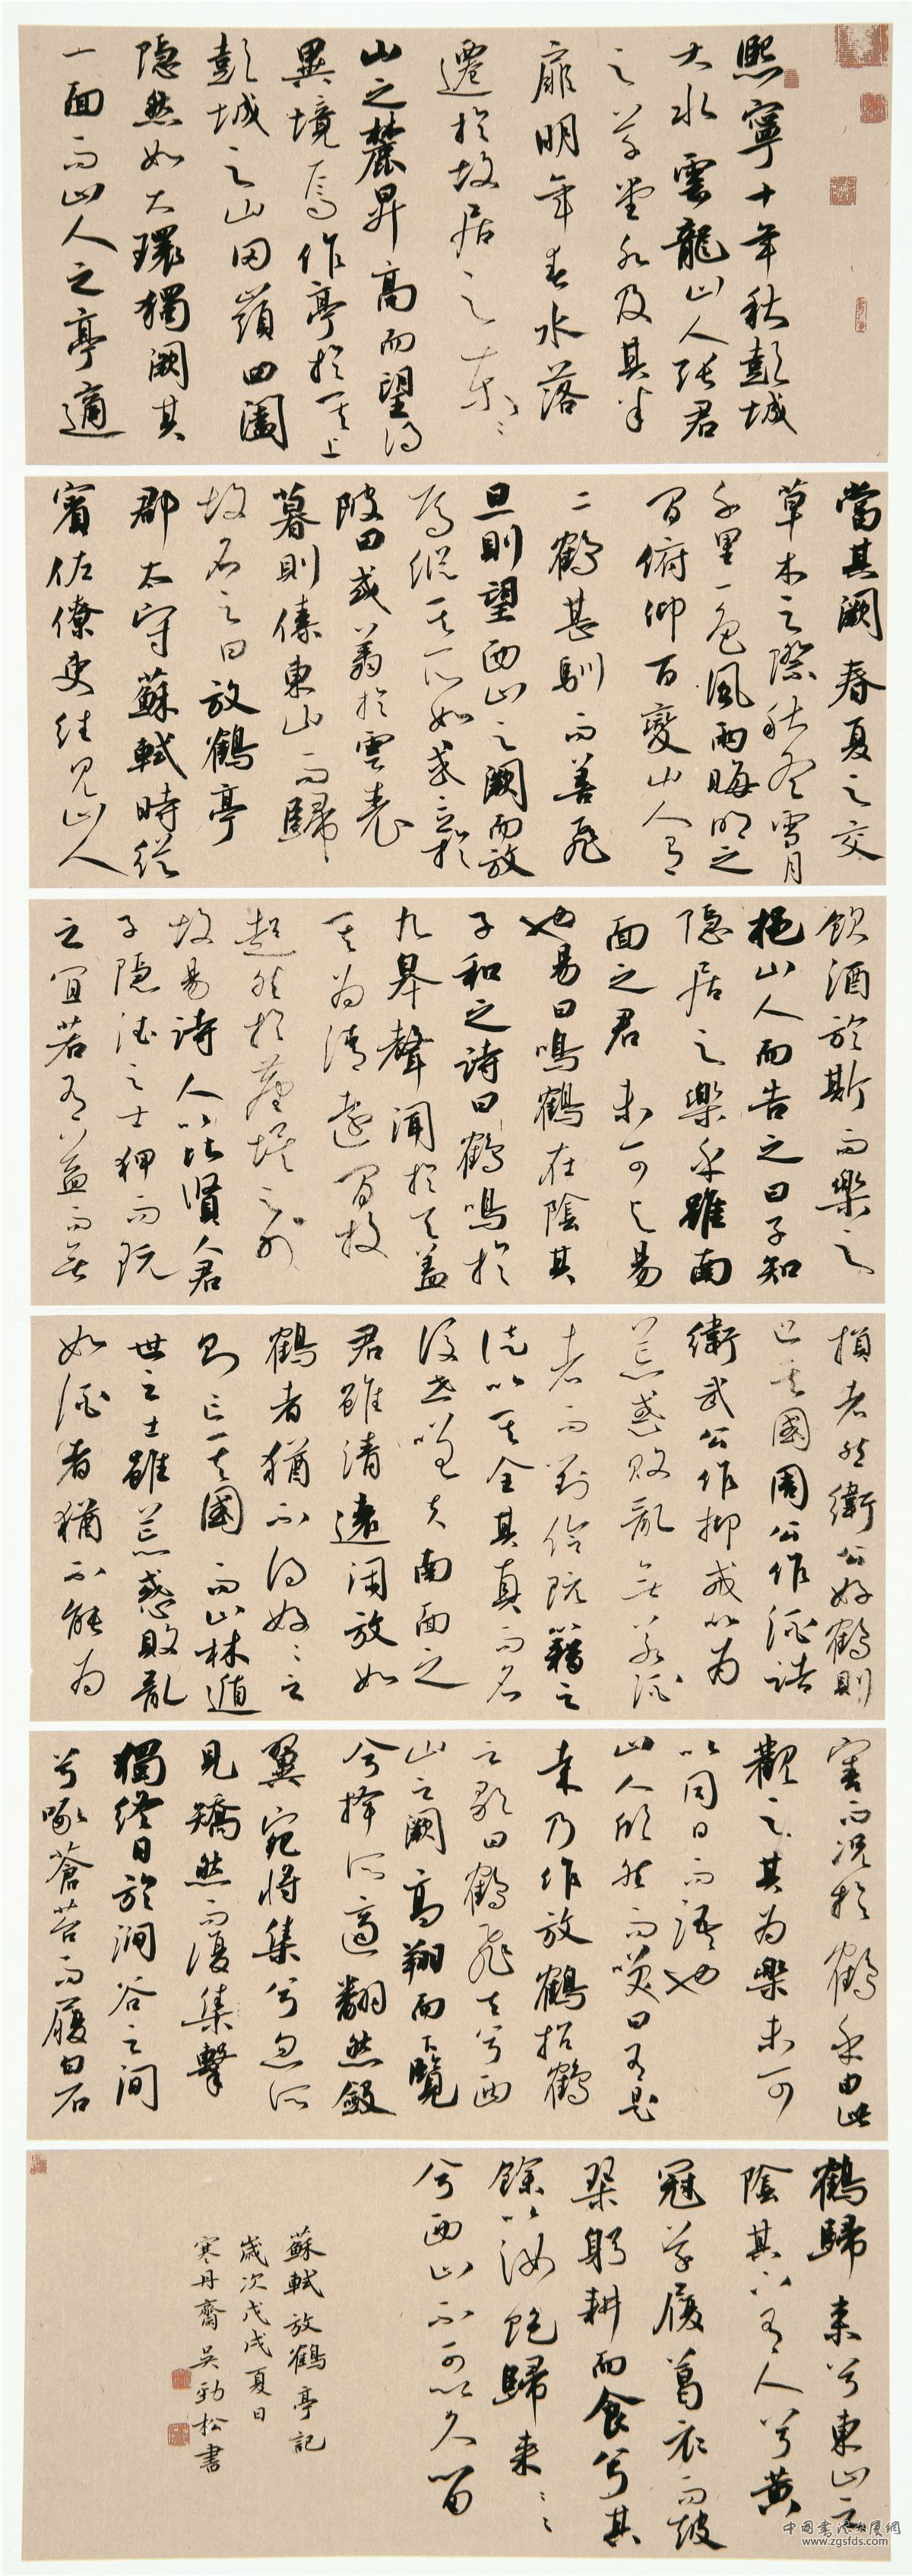 熙寧十年秋彭城
大水雲龍山人張君
之草堂水及其半
扉明年春水落
遷於故居之東〻
山之麓昇高而望得
異境焉作亭於其上
彭城之山岡嶺四圍
隱然如大環獨闕其
一面而山人之亭適
當其闕春夏之交
草木之際秋冬雪月
千里一色風雨晦明之
間俯仰百變山人有
二鶴甚馴而善飛
旦則望西山之闕而放
焉縱其所如或立於
陂田或翔於雲表
暮則傃東山而歸
故名之曰放鶴亭
郡太守蘇軾時從
賓佐僚吏往見山人
飲酒於斯而樂之
挹山人而告之曰子知
隱居之樂乎雖南
面之君未可與易
也易曰鳴鶴在陰其
子和之詩曰鶴鳴於
九皋聲聞於天蓋
其為清遠閒放
超然於塵埃之外
故易詩人以比賢人君
子隱德之士狎而玩
之宜若有益而無
損者然衛公好鶴則
亡其國周公作酒誥
衛武公作抑戒以為
荒惑敗亂無若酒
者而劉伶阮籍之
徒以其全其真而名
後世嗟夫南面之
君雖清遠閑放如
鶴者猶不得好〻之
則亡其國而山林遁
世之士雖荒惑敗亂
如酒者猶不能為
害而況於鶴乎由此
觀之其為樂未可
以同日而語也
山人欣然而笑曰有是
哉乃作放鶴招鶴
之歌曰鶴飛去兮西
山之闕高翔而下覽
兮擇所適翻然斂
翼宛將集兮忽所
見矯然而復集擊
獨終日於澗谷之間
兮啄蒼苔而履白石
鶴歸來兮東山之
陰其下有人兮黄
冠草履葛衣而鼓
琴躬耕而食兮其
餘以汝飽歸來〻〻
兮西山不可以久留
蘇軾放鶴亭記
歲次戊戌夏日
寒丹齋吳勁松書
www.zgsfds.com